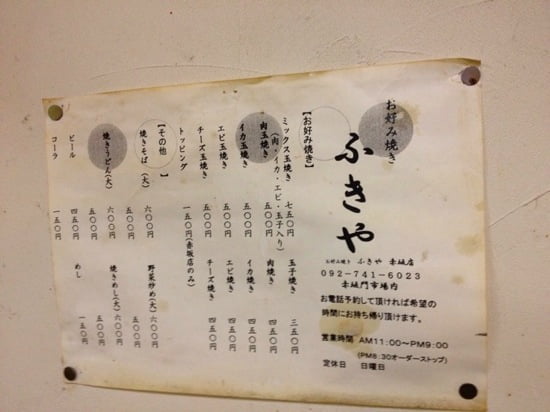 お好み焼き
ふきや
お好み焼き ふきや 赤坂店
092-741-6023
赤坂門市場内
お電話予約して頂ければ希望の
時間にお持ち帰り頂けます。
営業時間 AM11:00~PM9:00
(PM8:30オーダーストップ)
定休日 日曜日
【お好み焼き】
ミックス玉焼き 七五〇円 玉子焼き 三五〇円
(肉・イカ・エビ・玉子入り)
肉玉焼き 五〇〇円 肉焼き 四五〇円
イカ玉焼き 五〇〇円 イカ焼き 四五〇円
エビ玉焼き 五〇〇円 エビ焼き 四五〇円
チーズ玉焼き 五〇〇円 チーズ焼き 四五〇円
トッピング 一五〇円(赤坂店のみ)
【その他】
焼きそば(大) 六〇〇円 野菜炒め(大) 六〇〇円
五〇〇円 五〇〇円
焼きうどん(大) 六〇〇円 焼きめし(大) 六〇〇円
五〇〇円 五〇〇円
ビール 四五〇円 めし 一五〇円
コーラ 一五〇円